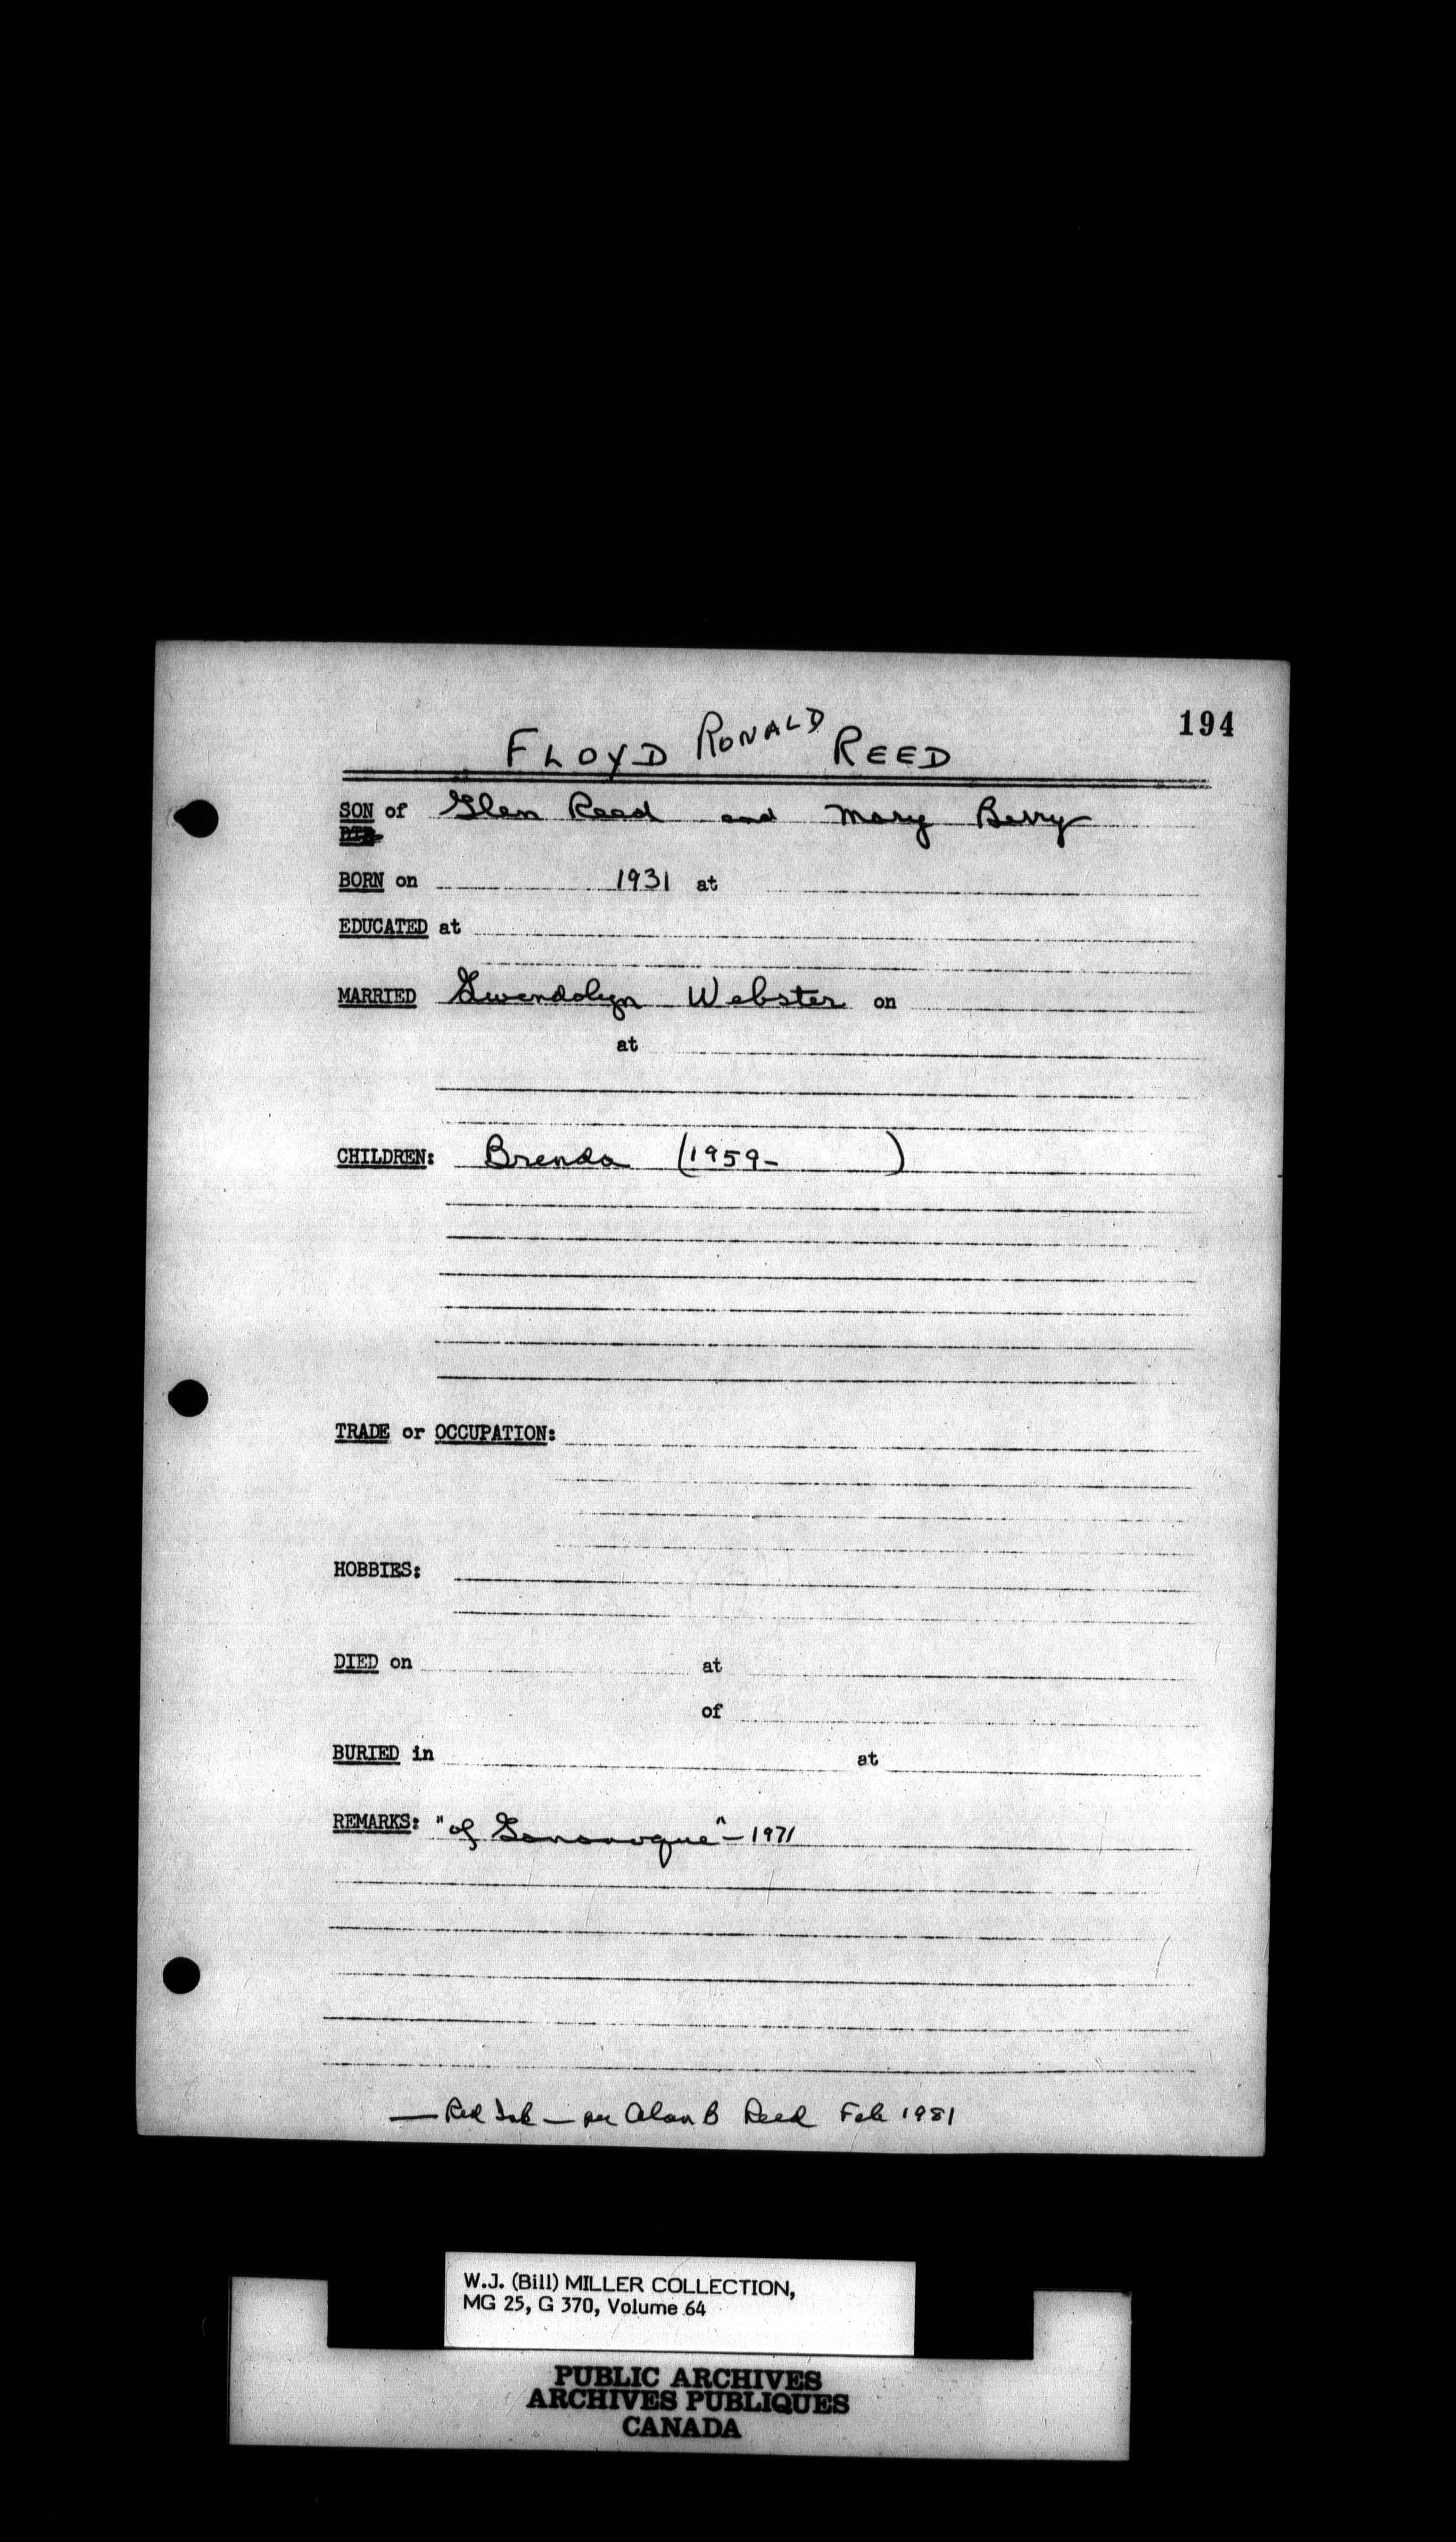 194
FLOYD RONALD REED
SON of Glen Reed and Mary Berry
DTR
BORN on 1931 at
EDUCATED at
MARRIED Gwendolyn Webster on
at
CHILDREN: Brenda (1959- )
TRADE or OCCUPATION:
HOBBIES:
DIED on at
of
BURIED in at
REMARKS: "of Gananoque" - 1971
— Red Ink — per Alan B Reed Feb 1981
W.J. (Bill) MILLER COLLECTION,
MG 25, G 370, Volume 64
PUBLIC ARCHIVES
ARCHIVES PUBLIQUES
CANADA